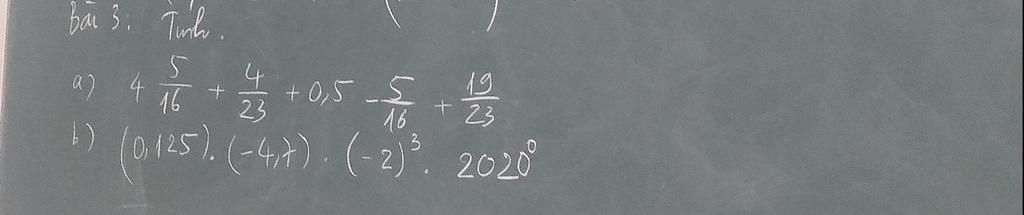 Bài 3: Tính.
a) 4 5/16 + 4/23 + 0,5 - 5/16 + 19/23
b) (0,125) . (-4,7) . (-2)³ . 2020⁰